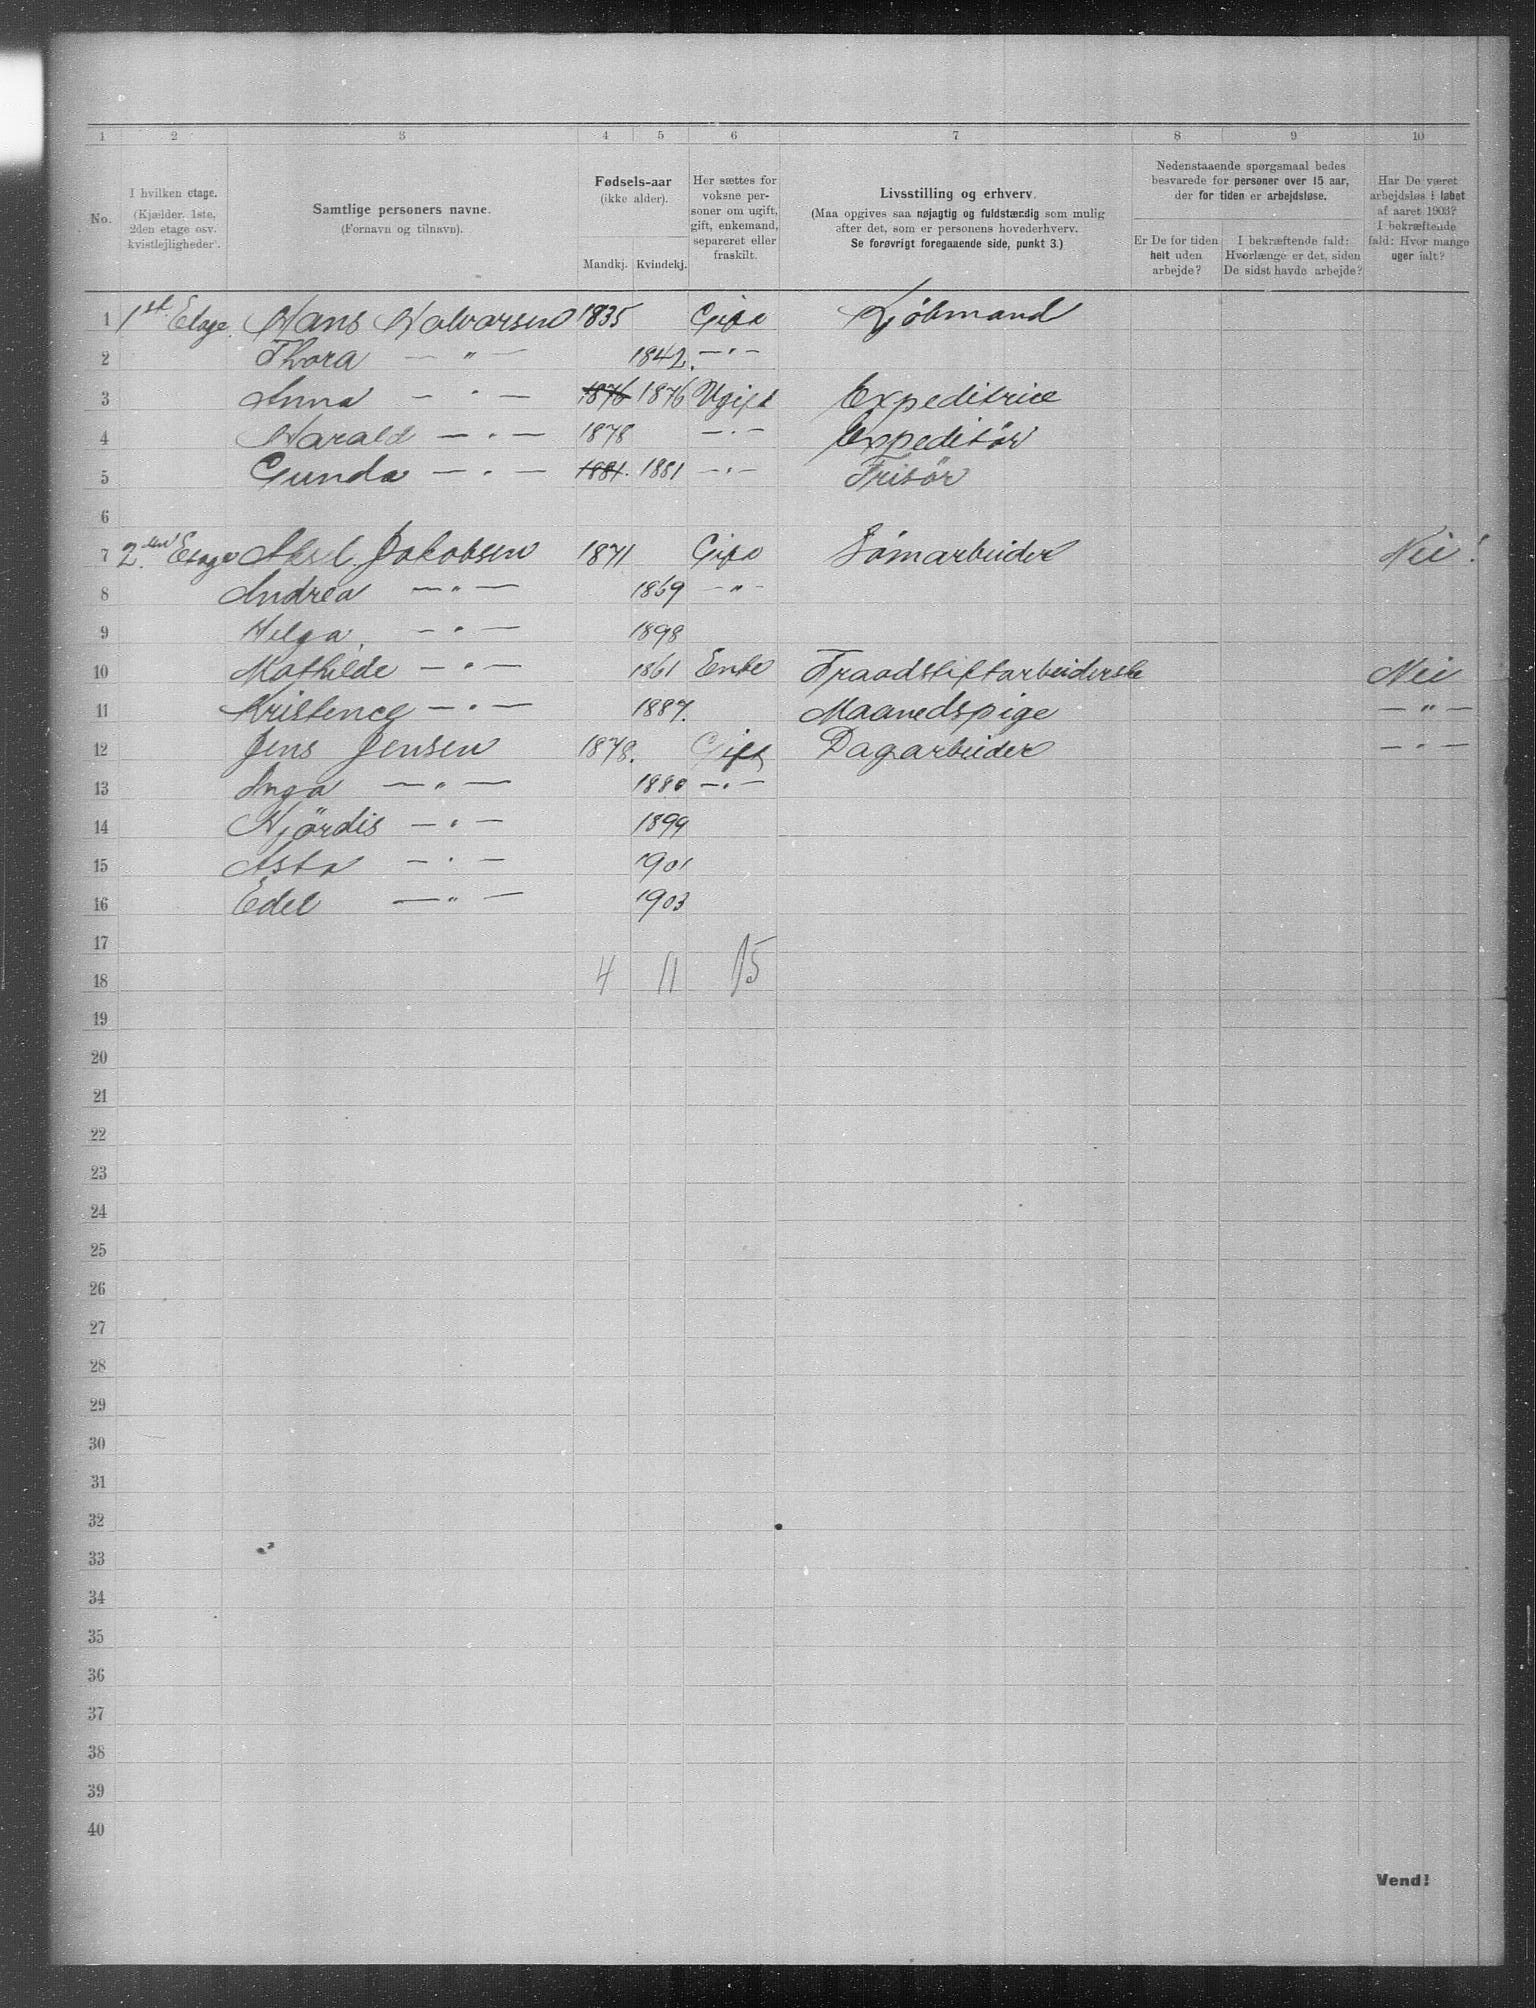 1 2 3 4 5 6 7 8 9 10
No.
I hvilken etage.
(Kjælder, 1ste,
2den etage osv.
kvistlejligheder).
Samtlige personers navne.
(Fornavn og tilnavn).
Fødsels-aar
(ikke alder).
Mandkj. Kvindekj.
Her sættes for
voksne per-
soner om ugift,
gift, enkemand,
separeret eller
fraskilt.
Livsstilling og erhverv.
(Maa opgives saa nøjagtig og fuldstændig som mulig
efter det, som er personens hovederhverv.
Se forøvrigt foregaaende side, punkt 3.)
Nedenstaaende spørgsmaal bedes
besvarede for personer over 15 aar,
der for tiden er arbejdsløse.
Er De for tiden
helt uden
arbejde?
I bekræftende fald:
Hvorlænge er det, siden
De sidst havde arbejde?
Har De været
arbejdsløs i løbet
af aaret 1903?
I bekræftende
fald: Hvor mange
uger ialt?
1 1st Etage. Hans Halvorsen 1835 Gift Kjöbmand
2 Thora — " — 1842. — " —
3 Anna — " — 1876 1876 Ugift Expeditrice
4 Harald — " — 1878 — " — Expeditör
5 Gunda — " — 1881. 1881 — " — Frisör
6
7 2den Etage Aksel Jakobsen 1871 Gift Sömarbeider Nei!
8 Andrea — " — 1869 — " —
9 Helga — " — 1898
10 Mathilde — " — 1861 Enke Traadstiftarbeiderske Nei
11 Kristence — " — 1887. Maanedspige — " —
12 Jens Jensen 1878. Gift Dagarbeider — " —
13 Inga — " — 1880 — " —
14 Hjördis — " — 1899
15 Asta — " — 1901
16 Edel — " — 1903
17
18 4 11 15
19
20
21
22
23
24
25
26
27
28
29
30
31
32
33
34
35
36
37
38
39
40
Vend!